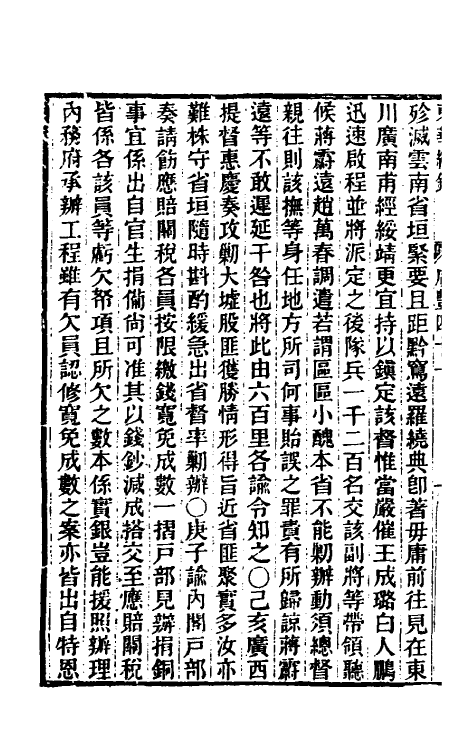 殄滅雲南省垣緊要且距黔窵遠羅繞典卽著毋庸前往見在東
川廣南甫經綏靖更宜持以鎭定該督惟當嚴催王成璐白人鵬
迅速啟程並將派定之後隊兵一千二百名交該副將等帶領聽
候蔣霨遠趙萬春調遣若謂區區小醜本省不能剿辦動須總督
親往則該撫等身任地方所司何事貽誤之罪責有所歸諒蔣霨
遠等不敢遲延干咎也將此由六百里各諭令知之〇己亥廣西
提督惠慶奏攻剿大墟股匪獲勝情形得旨近省匪聚實多汝亦
難株守省垣隨時斟酌緩急出省督率剿辦〇庚子諭內閣戶部
奏請飭應賠關稅各員按限繳錢寬免成數一摺戶部見辦捐銅
事宜係出自官生捐備尙可准其以錢鈔減成搭交至應賠關稅
皆係各該員等虧欠帑項且所欠之數本係實銀豈能援照辦理
內務府承辦工程雖有欠員認修寬免成數之案亦皆出自特恩